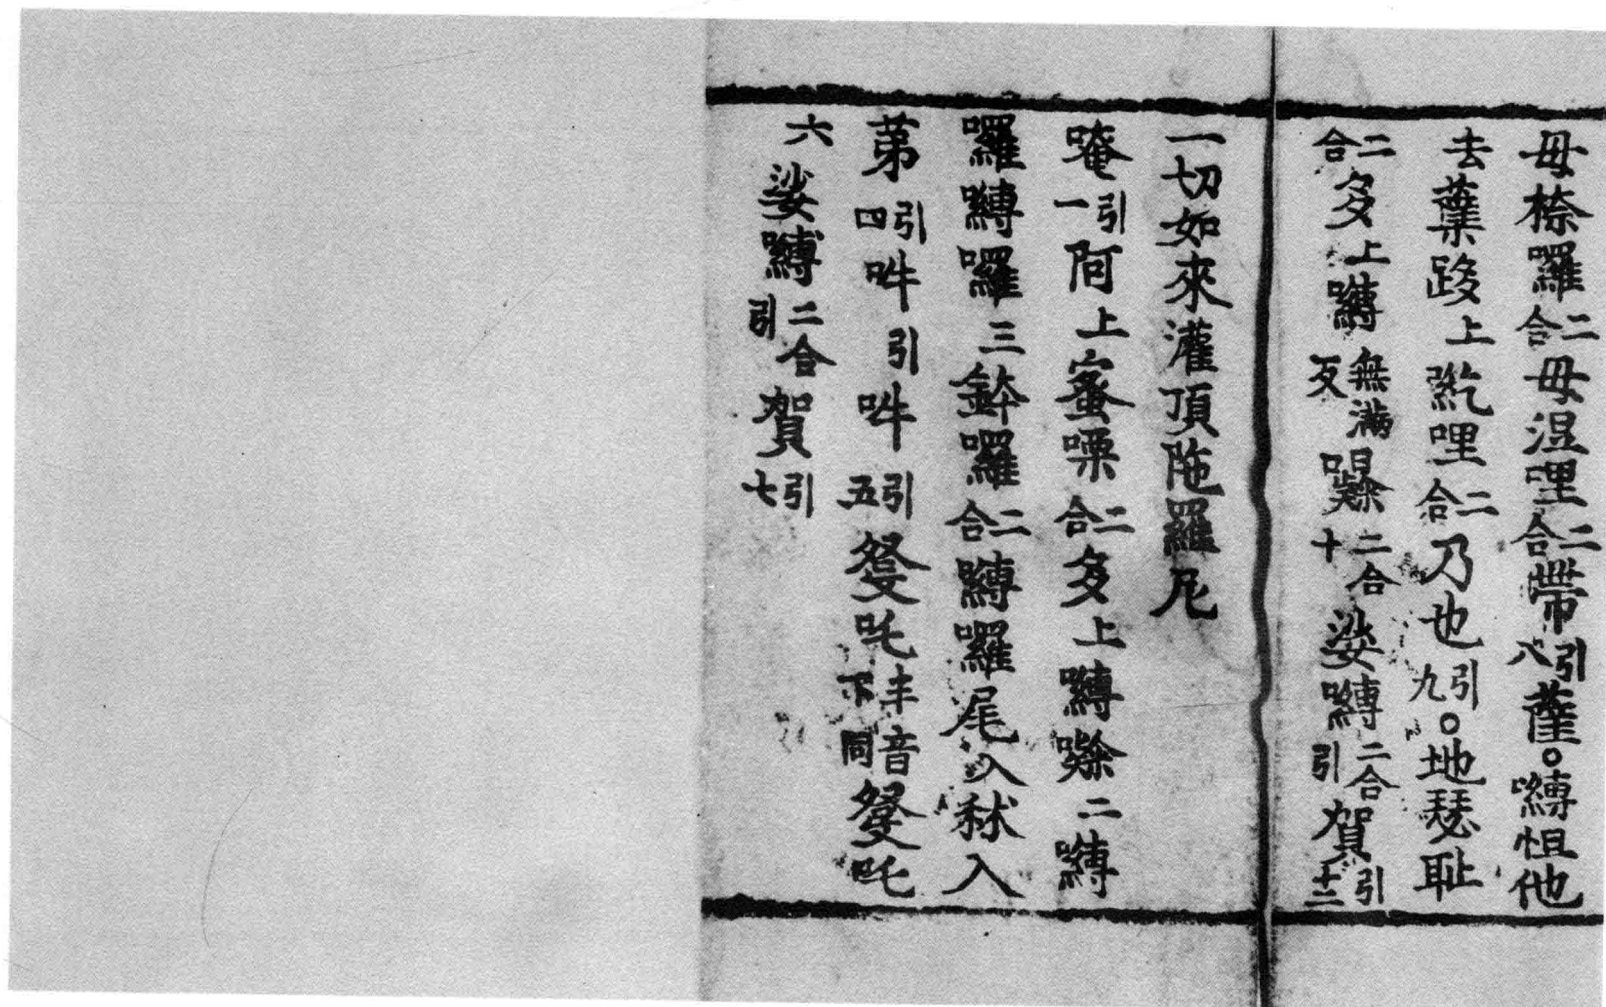 母㮈囉二合母湿哩二合帶引八薩。嚩怛他
去蘖跢上紇哩二合乃也引九。地瑟耻
二合多上嚩無滿反㘕二合十娑嚩二合引賀引十二
一切如來灌頂陁羅尼
唵引一阿上蜜㗚二合多上嚩㘑二嚩
囉嚩囉三鉢囉二合嚩囉尾入秫入
苐引四吽引吽引五發吒半音下同發吒
六娑嚩二合引賀引七